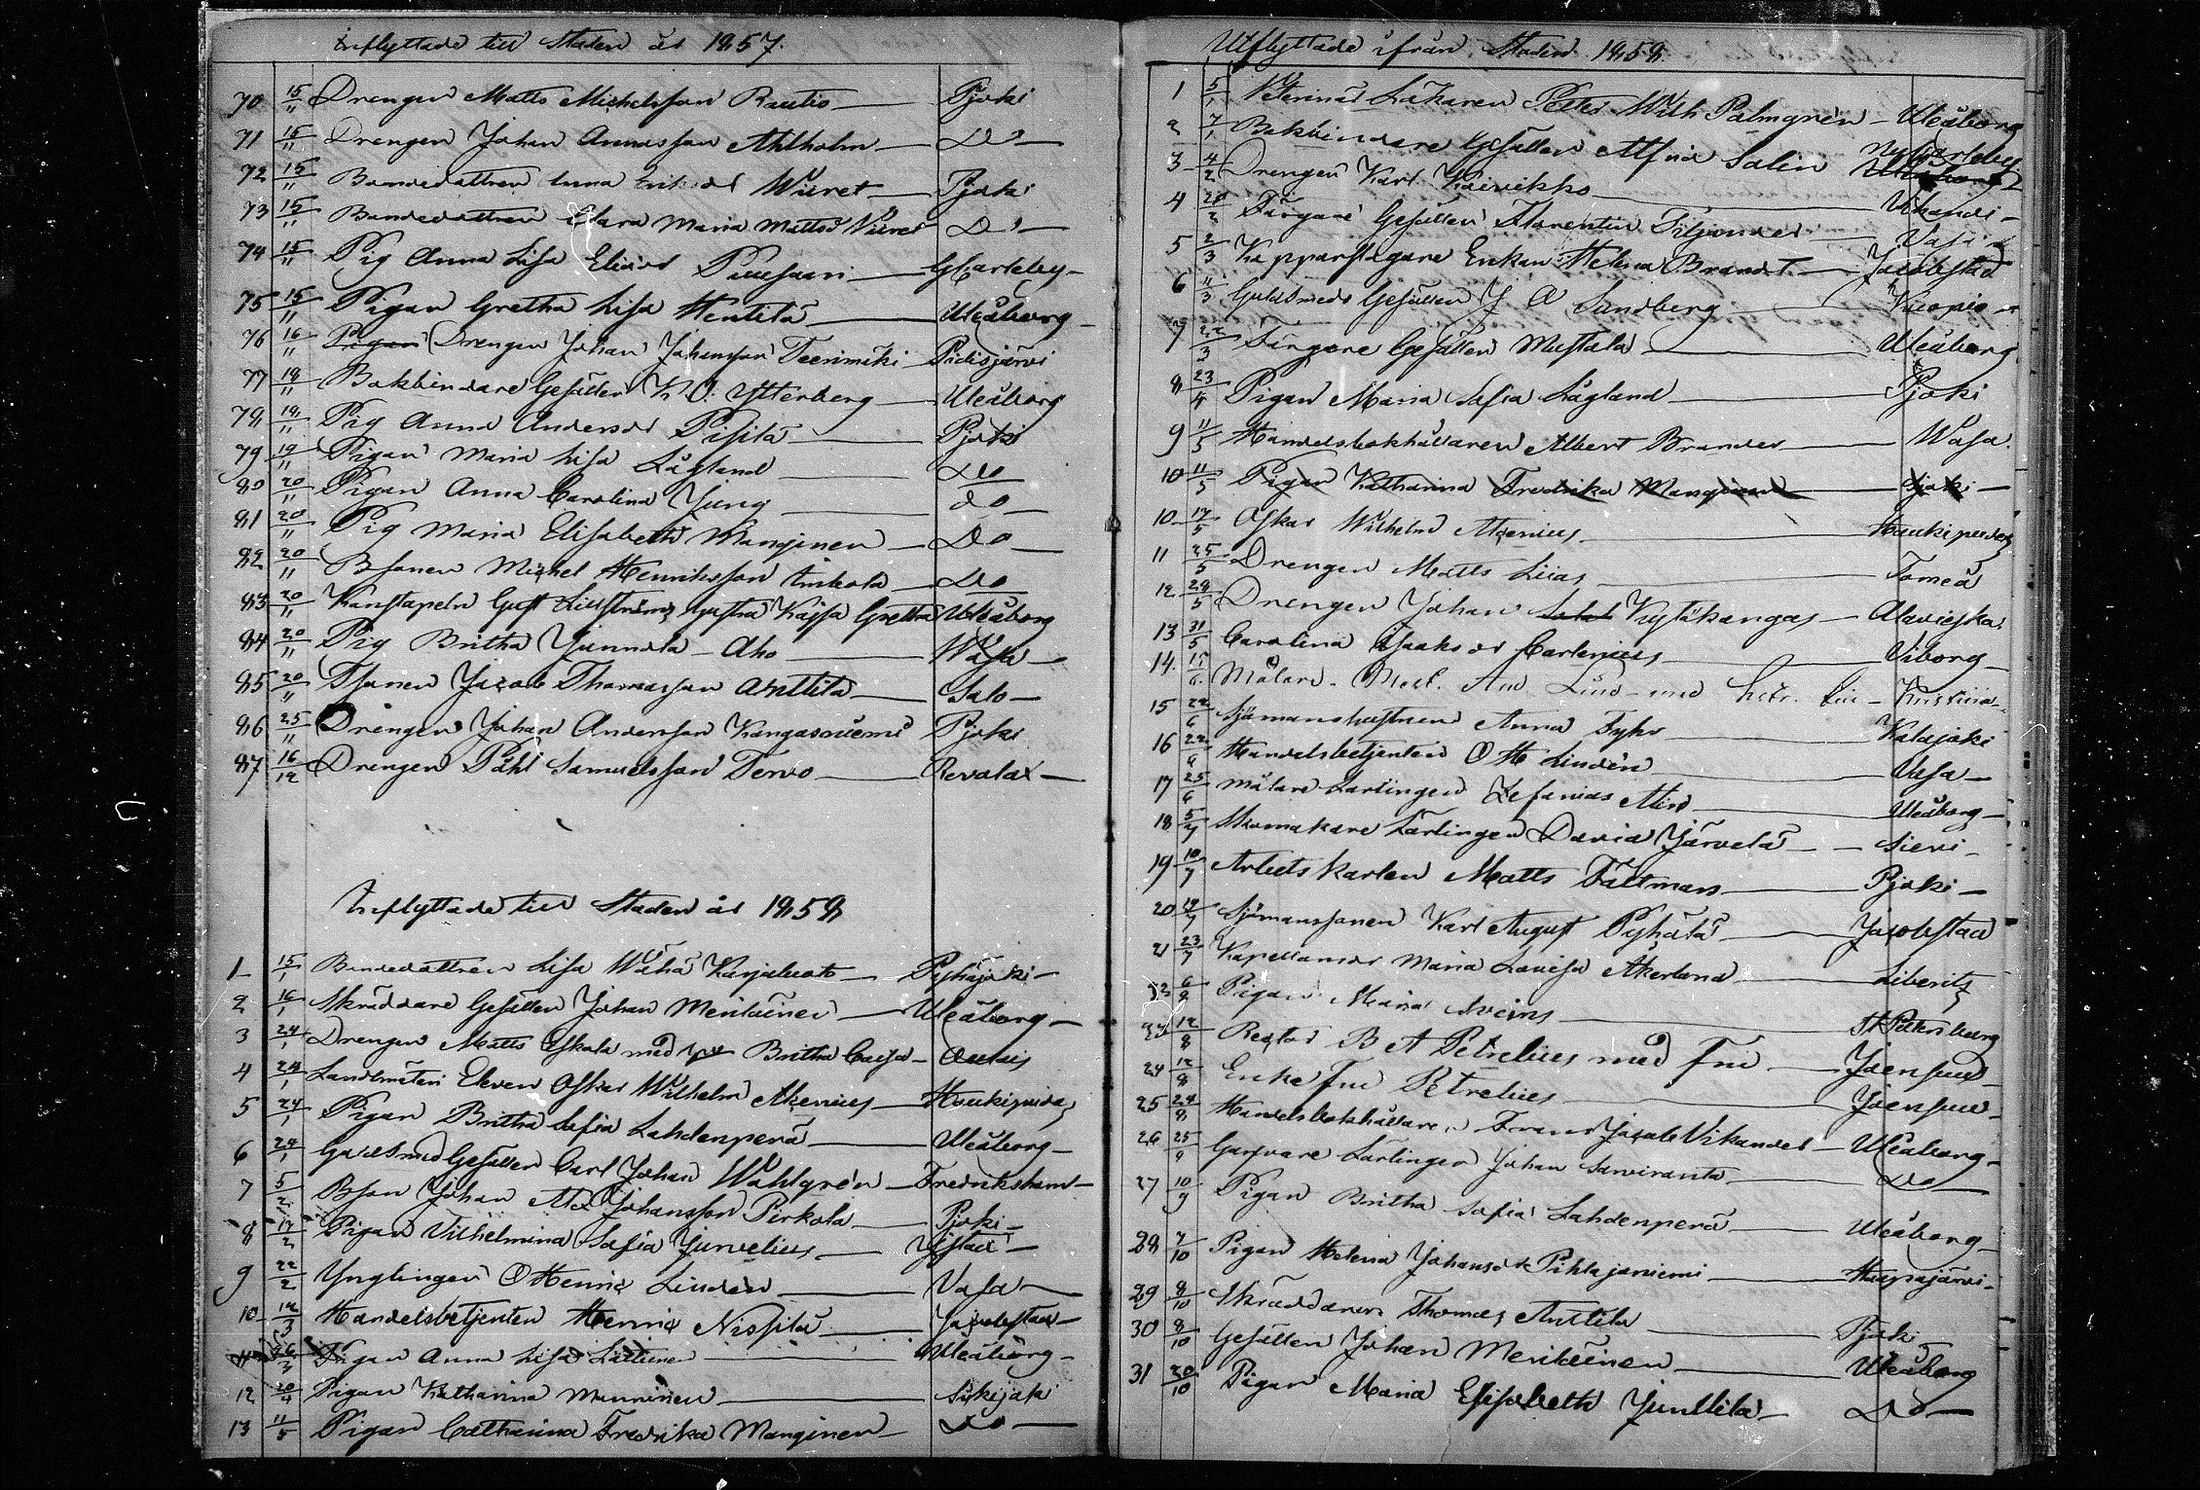 Inflyttade till Staden år 1857.
70 15/11 Drengen Matts Michelsson Rautio Pjoki
71 15/11 Drengen Johan Annasson Ahlholm Do
72 15/11 Bondedottren Anna Wiiret Pjoki
73 15/11 Bondedottren Clara Maria Mattsd Wiiret Do
74 15/11 Pig Anna Lisa Eliasd Puusaari GCarleby
75 15/11 Pigan Gretha Lisa Hentilä Uleåborg
76 16/11 Pigan Drengen Johan Johansson Teerimäki Pidisjärvi
77 18/11 Bokbindare Gesällen K O. Ytterberg Uleåborg
78 19/11 Pig Anna Andersd Pisilä Pjoki
79 19/11 Pigan Maria Lisa Lågland Do
80 20/11 Pigan Anna Carolina Ljung do
81 20/11 Pig Maria Elisabeth Manginen Do
82 20/11 Bsonen Michel Henriksson Do
83 20/11 Konstapeln Gust Lillström hustru Kajsa Gretha Uleåborg
84 20/11 Pig Britha Junnola Aho Wasa
85 20/11 Tsonen Jacob Thomasson Anttila Salo
86 25/11 Drengen Johan Andersson Kangasniemi Pjoki
87 16/12 Drengen Påhl Samuelsson Tervo Revolax
Inflyttade till Staden år 1858
1 15/1 Bondedottren Lisa Wähä Karjaluoto Pyhäjoki
2 16/1 Skräddare Gesällen Johan Meriläinen Uleåborg
3 24/1 Drengen Matts Eskola med Britha Caisa Oulais
4 24/1 Landtmäteri Eleven Oskar Wilhelm Alcenius Haukipudas
5 24/1 Pigan Britha Sofia Lahdenperä Uleåborg
6 29/1 Guldsmed Gesällen Carl Johan Wahlgren Fredrikshamn
7 5/2 Bson Johan Alx Johansson Pirkola Pjoki
8 17/2 Pigan Vilhelmina Sofia Jurvelius Jstad
9 22/2 Ynglingen O Henric Linden Vasa
10 12/3 Handelsbetjenten Henric Nissilä Jacobstad
11 26/3 Pigan Anna Lisa Uleåborg
12 20/4 Pigan Katharina Manninen Siikijoki
13 11/5 Pigan Catharina Fredrika Manginen Do
Utflyttade ifrån Staden 1858.
1 5/1 Veterinär Läkaren Petter Wilh Palmgren Uleåborg
2 7/1 Bokbindare Gesällen Alfrid Salin Nykarleby Uleåborg
3 4/2 Drengen Karl Koivikko Vihandi
4 20/2 Färgare Gesällen Florentin Siljander Vasa
5 2/3 Kopparslagare Enkan Helena Brandt Jacobstad
6 11/3 Guldsmeds Gesällen J A Sandberg Kuopio
7 22/3 Färgare Gesällen Mustala Uleåborg
8 23/4 Pigan Maria Sofia Lågland Pjoki
9 11/5 Handelsbokhållaren Albert Brander Wasa
10 11/5 Pigan Katharina Fredrika Manginen Sjoki
10 17/5 Oskar Wilhelm Alcenius Haukipudas
11 25/5 Drengen Matts Liias Torneå
12 29/5 Drengen Johan Kyläkangas Alavieska
13 31/5 Carolina Isaksdr Carlenius Viborg
14 15/6 Målare Mest. And Lind med hstr.
15 22/6 Sjömanshustrun Anna Fyhr Kalajoki
16 22/6 Handelsbetjenten O H Lindén Vasa
17 25/6 Målare Lärlingen Zefanias Alin Uleåborg
18 5/7 Skomakare Lärlingen David Järvelä Sievi
19 10/7 Arbets karlen Matts Fältmars Pjoki
20 19/7 Sjömanssonen Karl August Pyhälä Jacobstad
21 23/7 Kapellansd Maria Lovisa Åkerlund Liberitz
22 6/8 Pigan Maria St Petersburg
23 12/8 Rector B A Petrelius med Fru Joensuu
24 12/8 Enke Fru Petrelius Joensuu
25 24/8 Handelsbokhållaren Frans Jacob Vikander Uleåborg
26 25/9 Garfvare Lärlingen Johan Sarviranta Do
27 10/9 Pigan Britha Sofia Lahdenperä Uleåborg
28 7/10 Pigan Helena Johansdr Pihlajaniemi Haapajärvi
29 8/10 Skräddaren Thomas Anttila Pjoki
30 8/10 Gesällen Johan Meriläinen Uleåborg
31 20/10 Pigan Maria Elisabeth Junttila Do